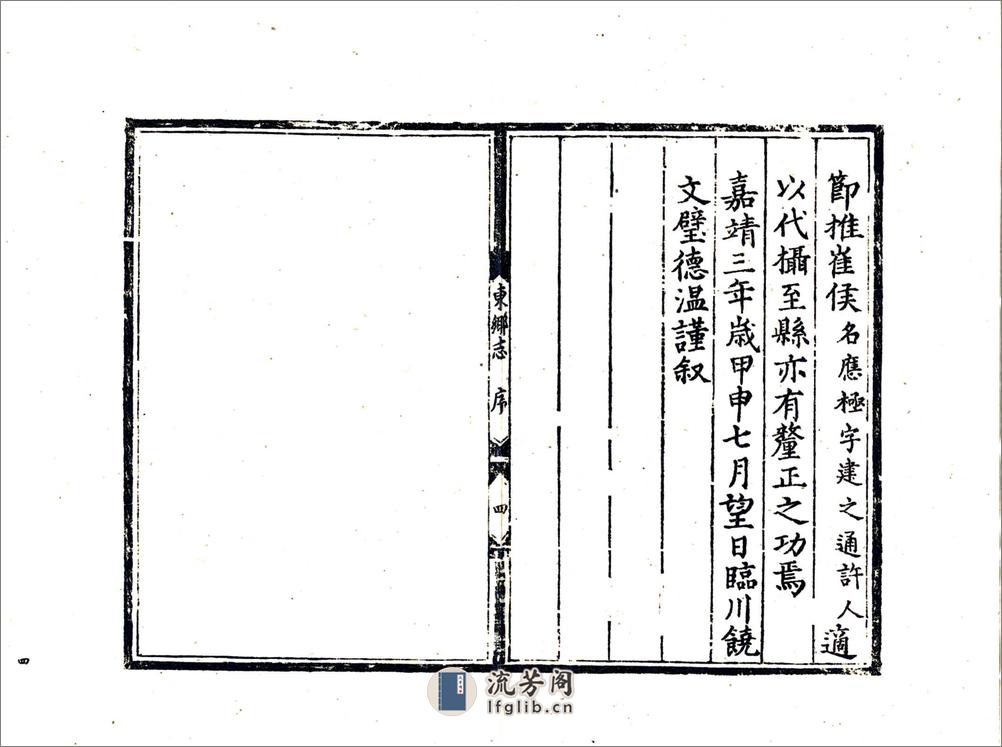 節推崔侯名應極字建之通許人適
以代攝至縣亦有釐正之功焉
嘉靖三年歲甲申七月望日臨川饒
文璧德温謹叙
東鄉志 序 四
四
流芳阁
lfglib.cn